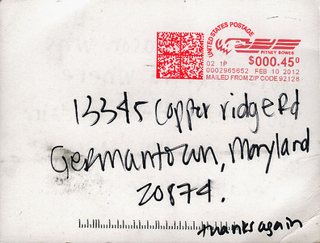 UNITED STATES POSTAGE
PITNEY BOWES
02 1P
$000.45⁰
0002965652 FEB 10 2012
MAILED FROM ZIP CODE 92126
13345 Copper ridge Rd
Germantown, Maryland
20874.
thanks again